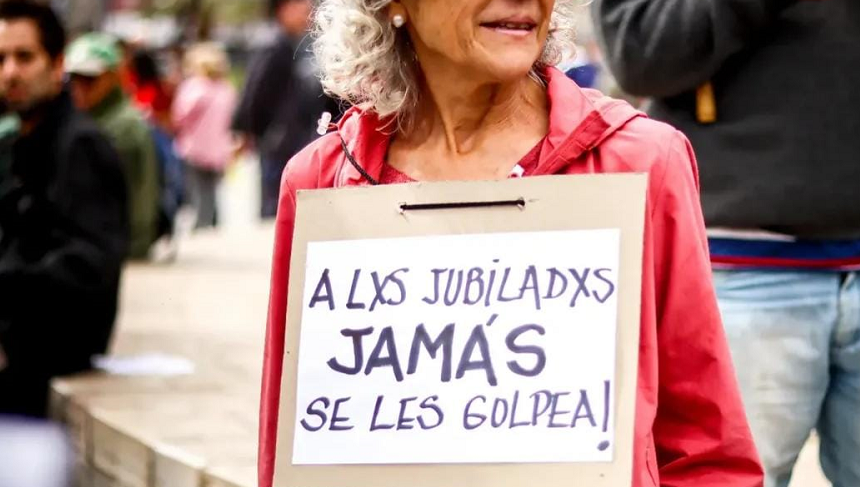 A LXS JUBILADXS
JAMÁS
SE LES GOLPEA!